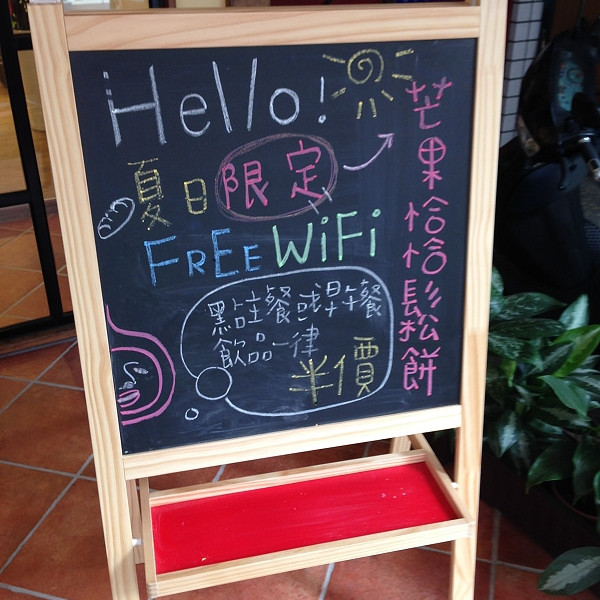 Hello!
夏日限定
芒果恰恰鬆餅
FREE WiFi
點主餐或早午餐
飲品一律
半價